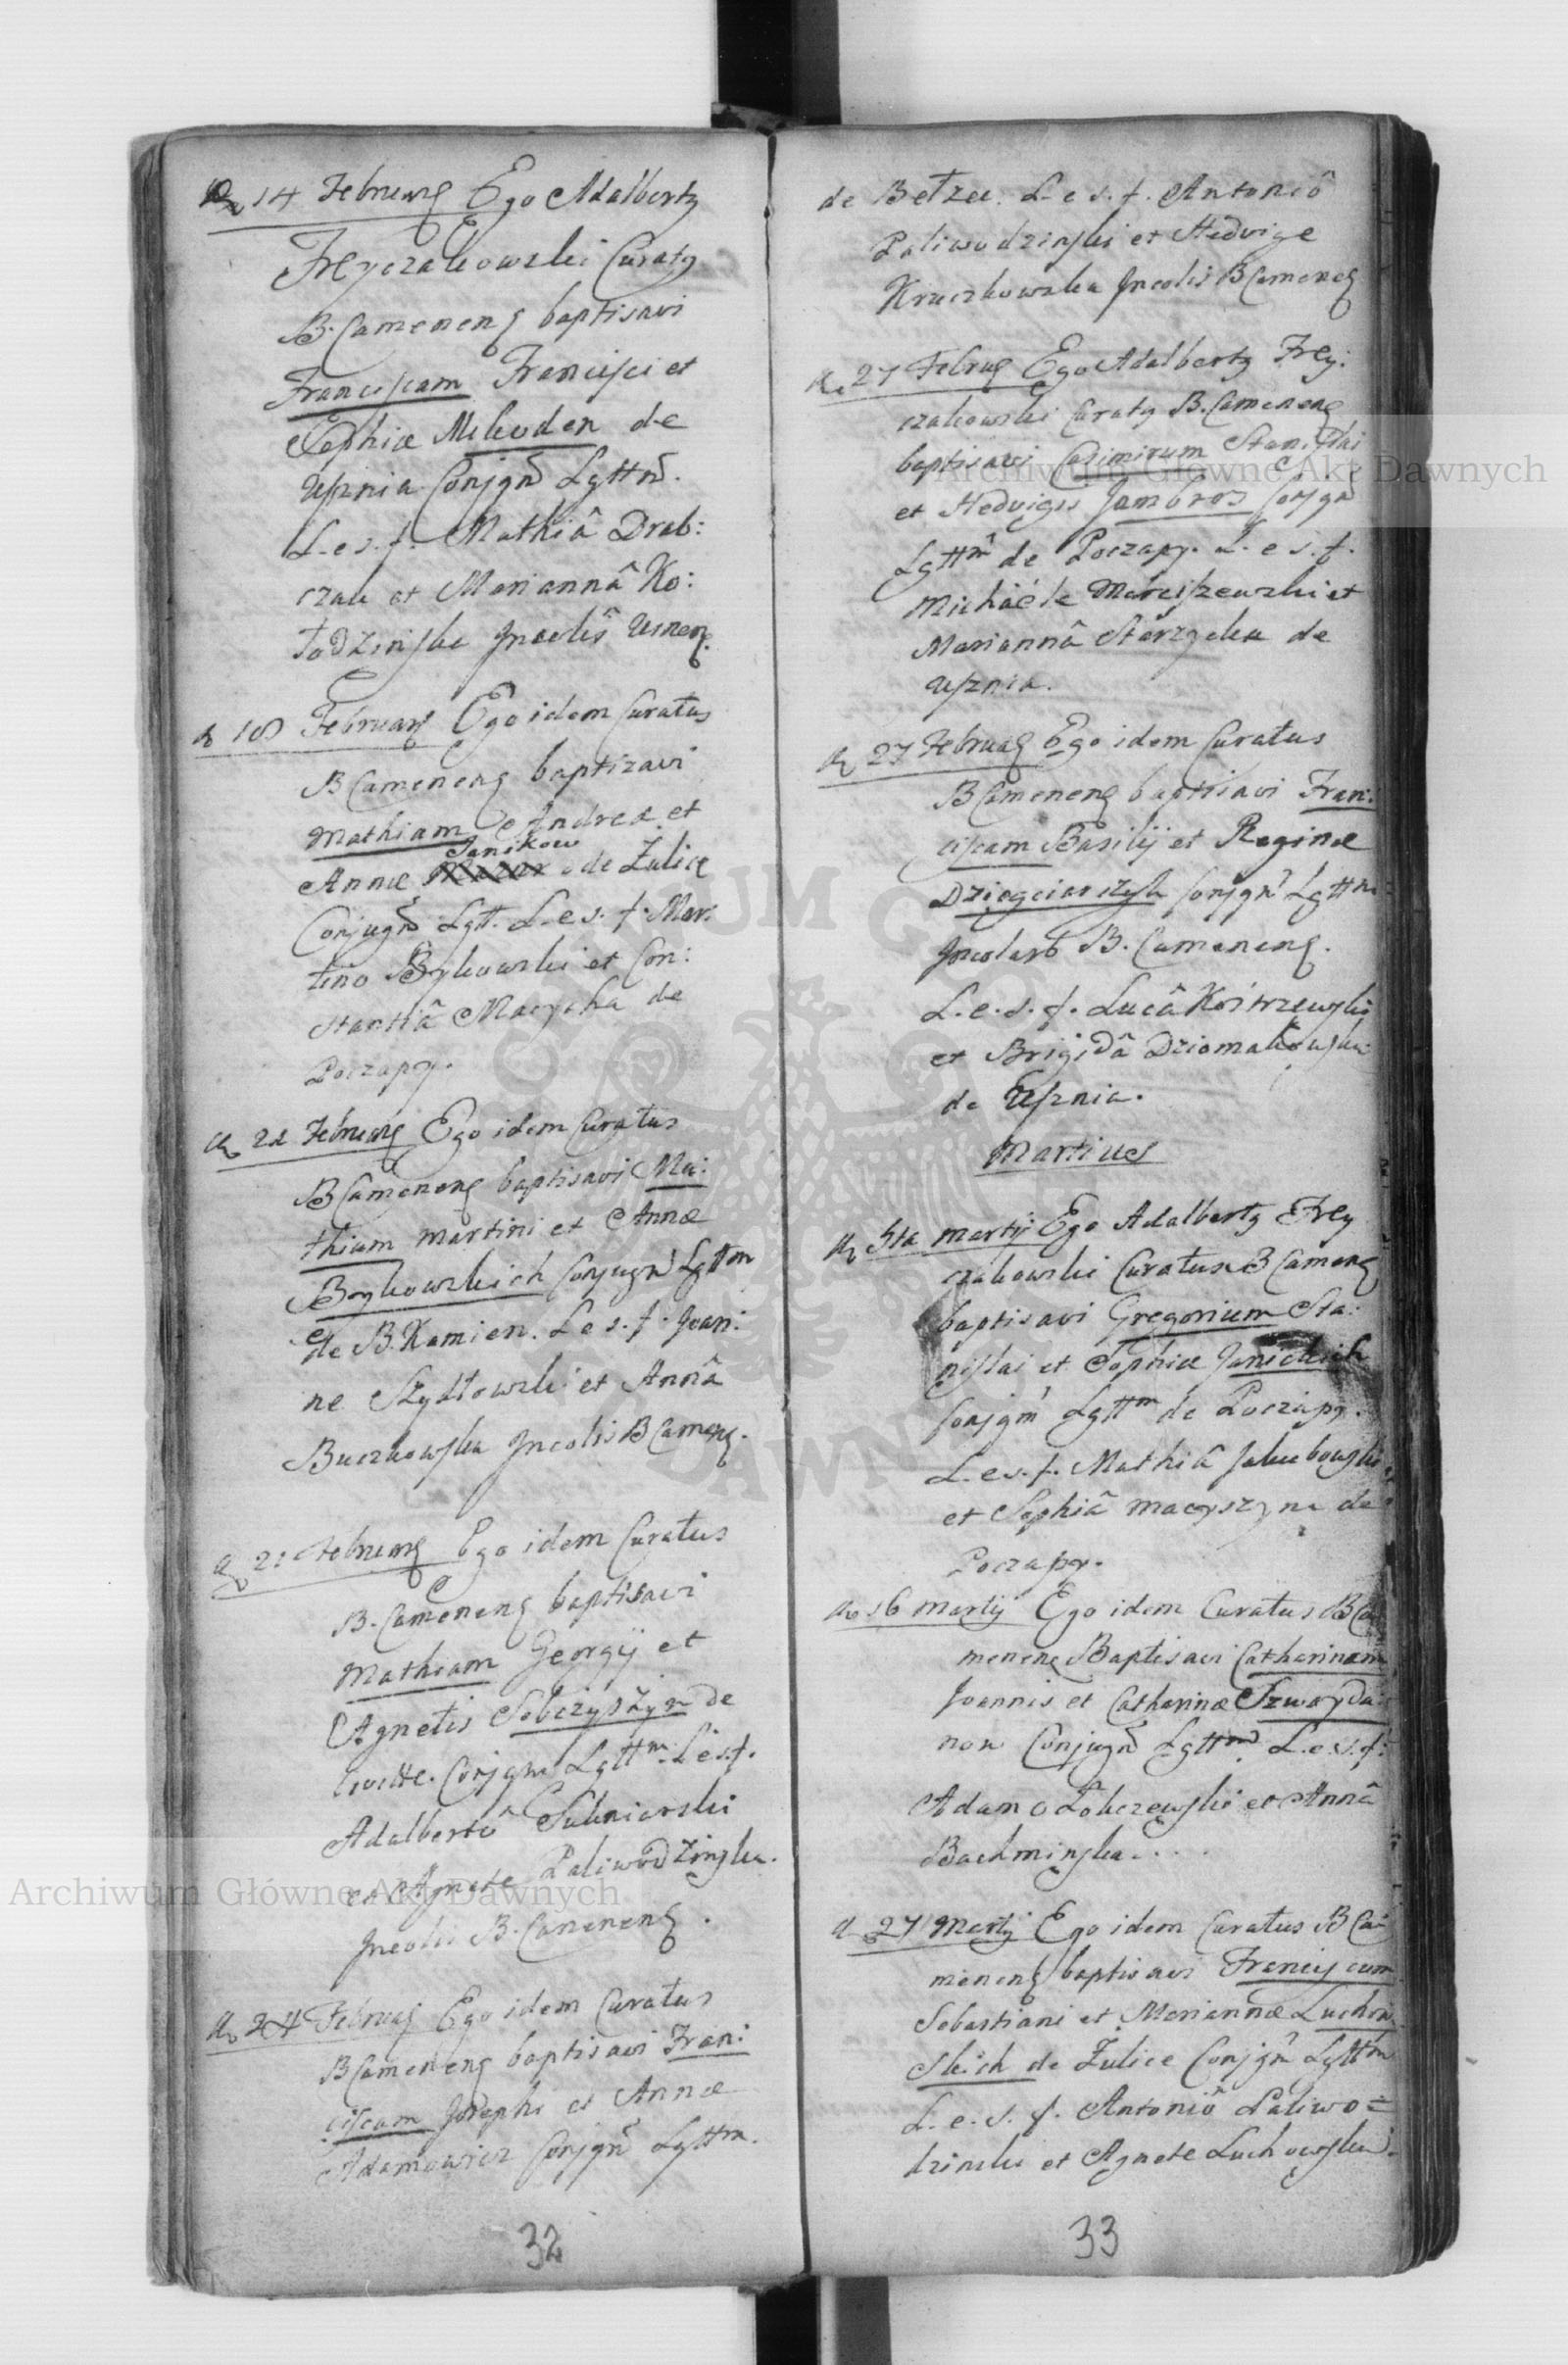 14 Februarij Ego Adalbertq
Freyczakowski Curatq
B. Camenenq baptisavi
Franciscam Francisci et
Sophiæ Mikoden de
Usznia Conjgũ Lgttũ.
L. e s. f. Mathiâ Drab:
czak et Mariannâ Ko:
łodzinska Incolis Usnen.
18 Februarij Ego idem Curatus
B Camenenq baptizavi
Mathiam Andreæ et
Janikow
Annæ de Zulice
Conjugũ Lgtt. L. e s. f. Mar:
tino Bykowski et Con:
stantiâ Macycha de
Poczapy.
22 Februarij Ego idem Curatus
B Camenenq baptisavi Ma:
thiam Martini et Annæ
Bykowskich Conjugũ Lgttm
de B. Kamien. L e s. f. Joan:
ne Szydłowski et Annâ
Buczkowska Incolis B Camenq.
21 Februarij Ego idem Curatus
B. Camenenq baptisavi
Mathiam Georgij et
Agnetis Sobczyszyn de
Conjgm Lgttm. L e s f.
Adalbertô Sulmierski
et Agnete Paliwodzinska.
Incolis B. Camenenq.
24 Februarij Ego idem Curatus
B Camenenq baptisavi Fran:
ciscam Josephi et Annæ
Adamowicz Conjgũ Lgttm.
32
de Bełzec. L. e s. f. Antoniô
Paliwodzinski et Hedvige
Kruczkowska Incolis B Camenenq
27 Februarij Ego Adalbertq Frey:
czakowski Curatq B. Camenenq
baptisavi Casimirum Stanislai
et Hedvigis Jambroz Conjgũ
Lgttm de Poczapy. L. e s. f.
Michaële Marciszewski et
Mariannâ Starzycka de
Usznia.
27 Februarij Ego idem Curatus
B Camenenq baptisavi Fran:
ciscam Basilij et Reginæ
Dziegciarczyk Conjgũ Lgttm
Incolarũ B. Camenenq.
L. e. s. f. Lucâ Kostrzewski
et Brigidâ Dziomakowska
de Usznia.
Martius
Martij Ego Adalbertq Frey
czakowski Curatus B Camenq
baptisavi Gregorium Sta:
nislai et Sophiæ Janickich
Conjgũ Lgttm de Poczapy.
L. e s. f. Mathiâ Jakubowski
et Sophiâ Macyszyna de
Poczapy.
16 Martij Ego idem Curatus B Ca
menenq Baptisavi Catharinam
Joannis et Catharinæ Szwayda:
now Conjugũ Lgttm L. e. s. f:
Adamo Łobczewski et Annâ
Bachminska....
27 Martij Ego idem Curatus B Ca:
menenq baptisavi Franciscum
Sebastiani et Mariannæ Luchow
skich de Zulice Conjgũ Lgttm
L. e. s. f. Antoniô Paliwo=
dzinski et Agnete Luchowska.
33
Archiwum Główne Akt Dawnych
Archiwum Główne Akt Dawnych